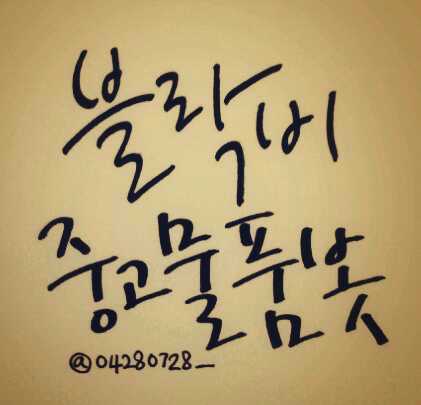 블락비
중고물품봇
@04280728_